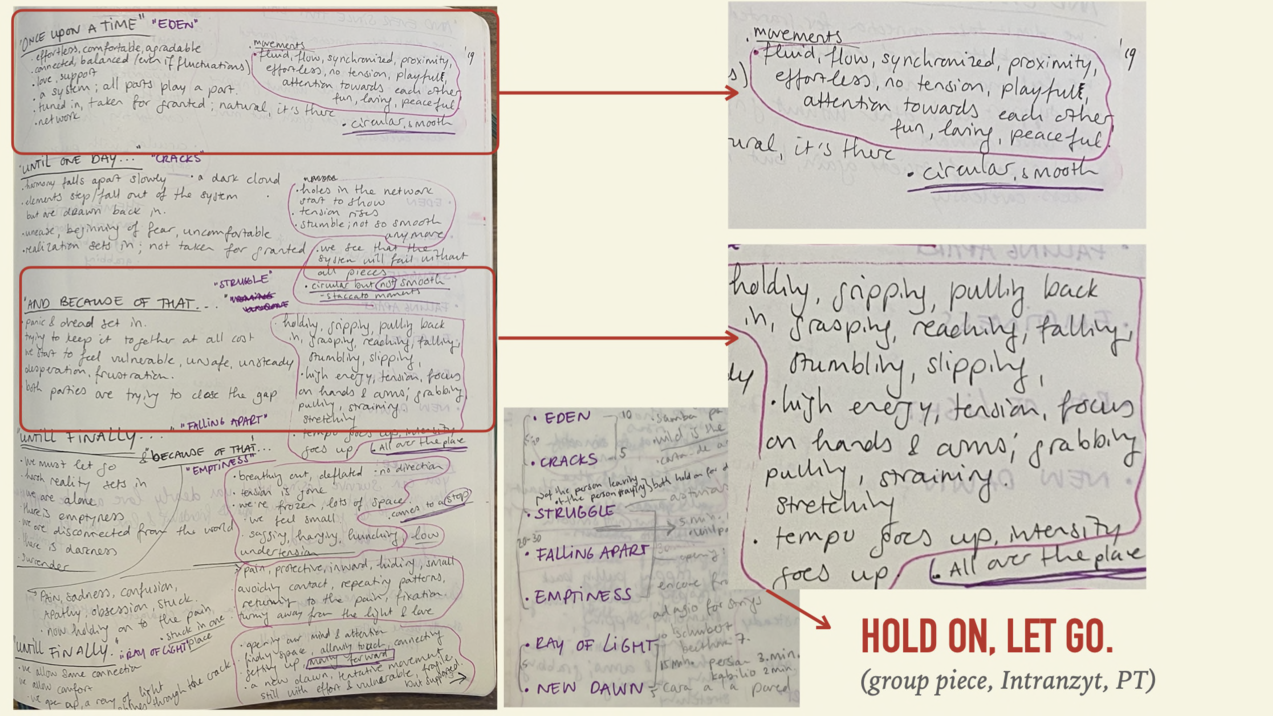 "ONCE UPON A TIME" "EDEN"
• effortless, comfortable, agradable
connected, balanced (even if fluctuations)
• love, support
• a system; all parts play a part
• tuned in, taken for granted; natural, it's there
• network
movements
• fluid, flow, synchronized, proximity,
effortless, no tension, playfull,
attention towards each other
fun, loving, peaceful
• circular, smooth
'19
"UNTIL ONE DAY..." "CRACKS"
• harmony falls apart slowly • a dark cloud
• elements step/fall out of the system
but are drawn back in.
• unease, beginning of fear, uncomfortable
• realization sets in; not taken for granted
• holes in the network
start to show
• tension rises
• stumble; not so smooth
anymore
• we see that the
system will fail without
all pieces
• circular but not smooth
- staccato moments
"AND BECAUSE OF THAT... "STRUGGLE"
• panic & dread set in.
trying to keep it together at all cost
we start to feel vulnerable, unsafe, unsteady
desperation, frustration.
both parties are trying to close the gap
holding, gripping, pulling back
in, grasping, reaching, falling,
stumbling, slipping,
• high energy, tension, focus
on hands & arms; grabbing
pulling, straining.
stretching
• tempo goes up, intensity
goes up • All over the place
"UNTILL FINALLY..." "FALLING APART"
& BECAUSE OF THAT...
"EMPTINESS"
• we must let go
harsh reality sets in
we are alone
there is emptyness
we are disconnected from the world
there is darkness
surrender
• breathing out, deflated • no direction
• tension is gone
• we're frozen, lots of space
• we feel small • comes to a stop
• sagging, hanging, hunching low
undertension
→ Pain, sadness, confusion,
Apathy, obsession, stuck.
• now holding on to the pain,
• stuck in one
place
pain, protective, inward, hiding, small
avoiding contact, repeating patterns,
returning to the pain, fixation.
turning away from the light & love
"UNTILL FINALLY..." "RAY OF LIGHT"
• we allow some connection
we allow comfort
• we open up, a ray of light
through the crack,
• opening our mind & attention
finding space, allowing touch, connecting
getting up, moving forward
• a new dawn, tentative movement
still with effort & vulnerable, fragile
but supported
movements
• fluid, flow, synchronized, proximity,
effortless, no tension, playfull,
attention towards each other
fun, loving, peaceful
ural, it's there
• circular, smooth
'19
holding, gripping, pulling back
in, grasping, reaching, falling,
stumbling, slipping,
• high energy, tension, focus
on hands & arms; grabbing
pulling, straining.
stretching
• tempo goes up, intensity
goes up • All over the place
• EDEN 10
• CRACKS 5
Not the person leaving
or the person staying, both hold on
• STRUGGLE
20-30
• FALLING APART
• EMPTINESS
adagio for strings
• RAY OF LIGHT
• NEW DAWN
HOLD ON, LET GO.
(group piece, Intranzyt, PT)